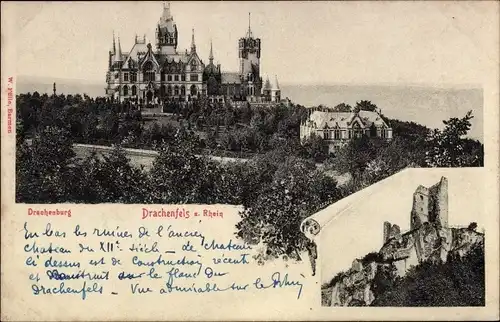 W. Fülle, Barmen
Drachenburg
Drachenfels a. Rhein
En bas les ruines de l'ancien
chateau du XIIe siècle - le chateau
ci dessus est de construction récente
et construit sur le flanc du
Drachenfels - Vue admirable sur le Rhin